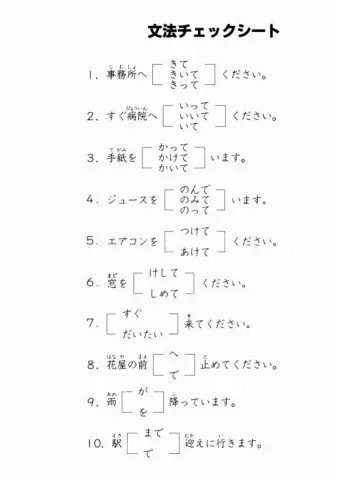 文法チェックシート
じむしょ
きて
1. 事務所へ きいて ください。
きって
びょういん
いって
2. すぐ病院へ いいて ください。
いて
てがみ
かって
3. 手紙を かけて います。
かいて
のんで
4. ジュースを のみて います。
のって
つけて
5. エアコンを ください。
あけて
まど
けして
6. 窓を ください。
しめて
すぐ
き
7. 来てください。
だいたい
はなや まえ
へ
と
8. 花屋の前 止めてください。
で
あめ
が
ふ
9. 雨 降っています。
を
えき
まで
むか い
10. 駅 迎えに行きます。
で